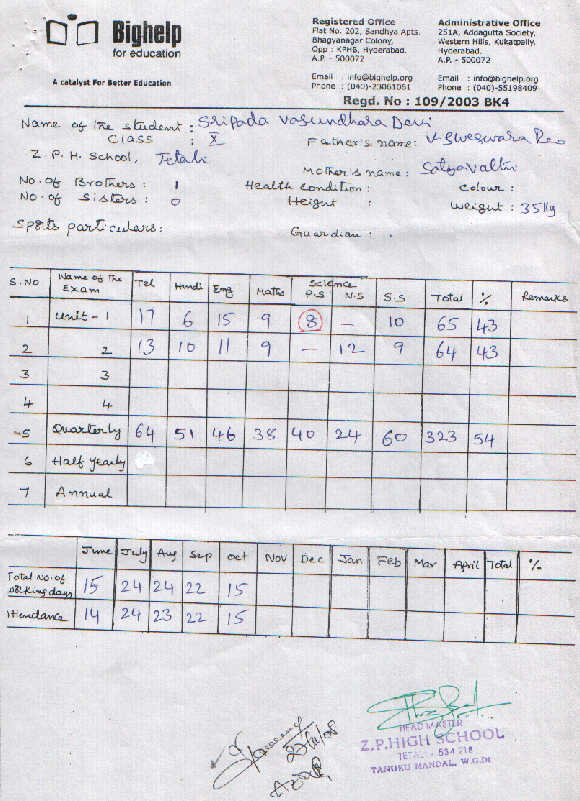 Bighelp
for education
A catalyst For Better Education
Registered Office
Flat No. 202, Sandhya Apts.
Bhagyanagar Colony,
Opp : KPHB, Hyderabad.
A.P. - 500072
Email : info@bighelp.org
Phone : (040)-23061061
Administrative Office
251A, Addagutta Society,
Western Hills, Kukatpally,
Hyderabad.
A.P. - 500072
Email : info@bighelp.org
Phone : (040)-55198409
Regd. No : 109/2003 BK4
Name of the student : Sripada Vasundhara Devi
CLASS : X Father's name: V Sweswara Rao
Z.P.H. School, Tetali
Mother's name: Satyavathi
No. Of Brothers : 1 Health Condition : Colour :
No. of Sisters : 0 Height : Weight : 35 Kg
Sports particulars: Guardian : .
S.NO Name of the Exam Tel Hindi Eng Maths Science P.S N.S S.S Total % Remarks
1 Unit - 1 17 6 15 9 8 - 10 65 43
2 2 13 10 11 9 - 12 9 64 43
3 3
4 4
5 Quarterly 64 51 46 38 40 24 60 323 54
6 Half Yearly
7 Annual
June July Aug Sep Oct Nov Dec Jan Feb Mar April Total %
Total No. of working days 15 24 24 22 15
Attendance 14 24 23 22 15
HEAD MASTER
Z.P.HIGH SCHOOL
TETALI - 534 218
TANUKU MANDAL, W.G.Dt